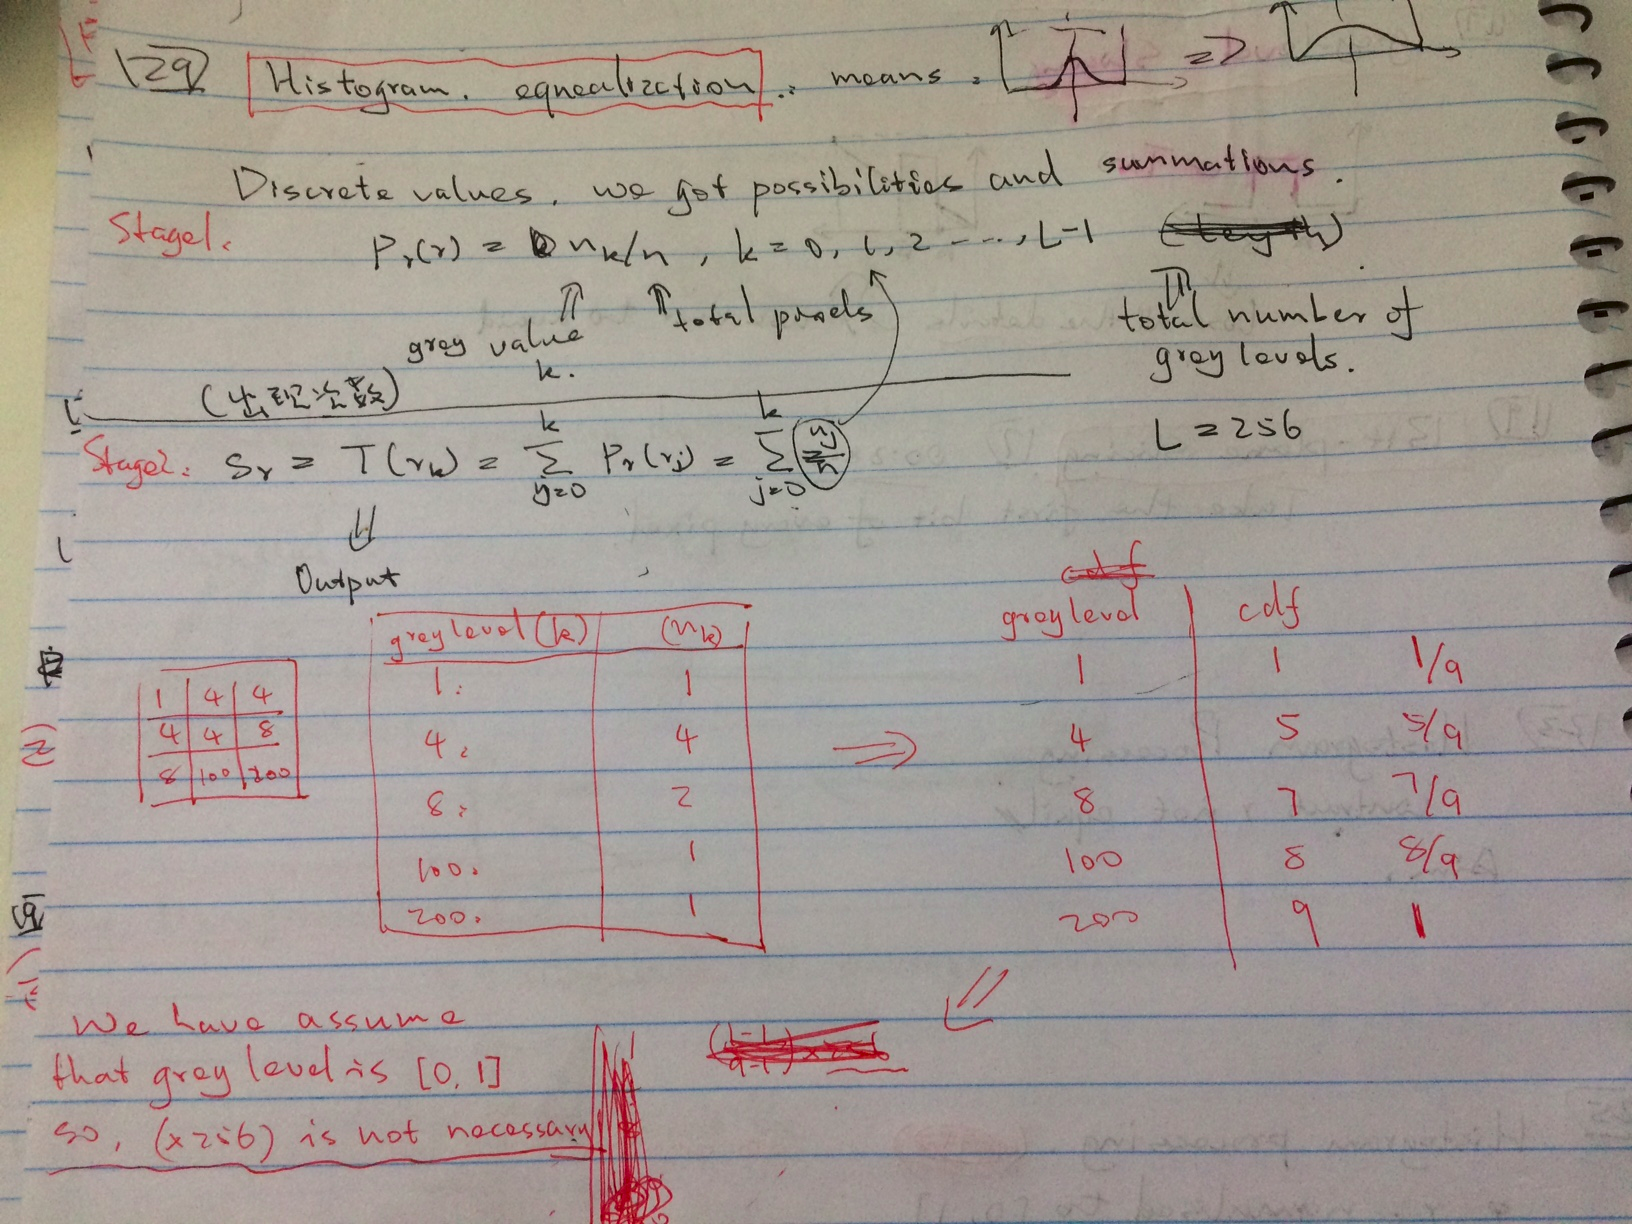 129 Histogram. equealization .: means :
=>
Discrete values. we got possibilities and summations.
Stage1.
Pr(r) = nk/n , k = 0, 1, 2 ---..., L-1
grey value k.
total pixels
total number of
grey levels.
(出现次数)
L = 256
Stage2: Sr = T(rk) = Σ k j=0 Pr(rj) = Σ k j=0 nj/n
Output
grey level (k) (nk)
1. 1
4. 4
8. 2
100. 1
200. 1
1 4 4
4 4 8
8 100 200
grey level cdf
1 1 1/9
4 5 5/9
8 7 7/9
100 8 8/9
200 9 1
We have assume
that grey level is [0, 1]
so, (x256) is not necessary